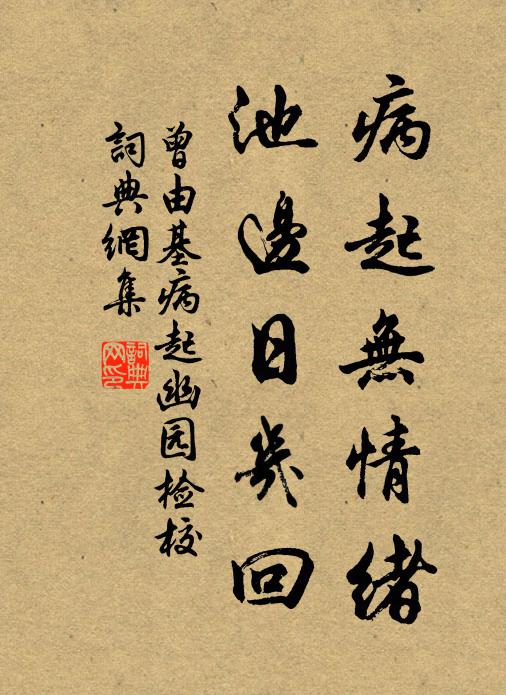 病起無情緒
池邊日幾回
曾由基病起幽园检校
詞典網集
詞典
网印